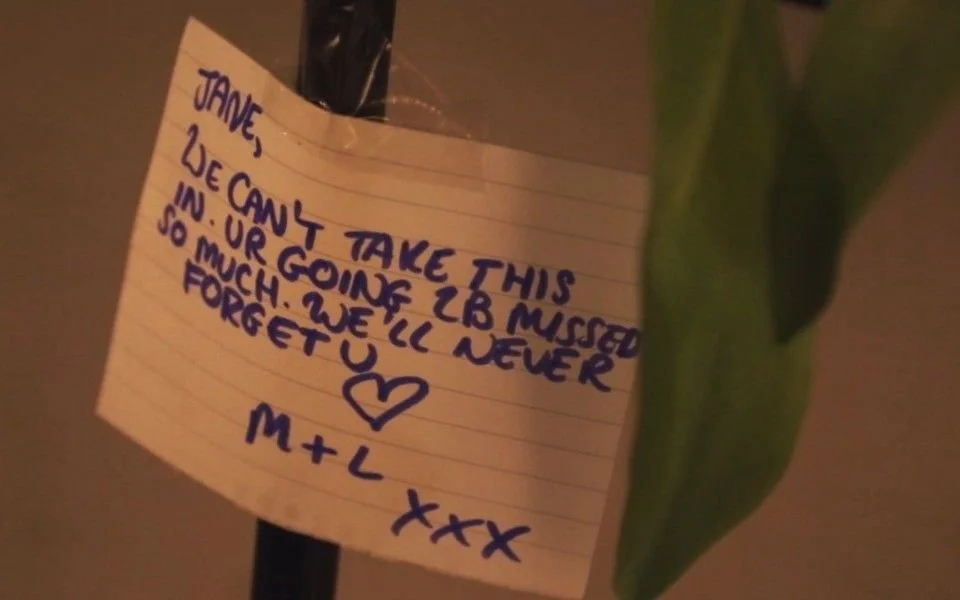 JANE,
WE CAN'T TAKE THIS
IN. UR GOING 2B MISSED
SO MUCH. WE'LL NEVER
FORGET U
♡
M + L
XXX